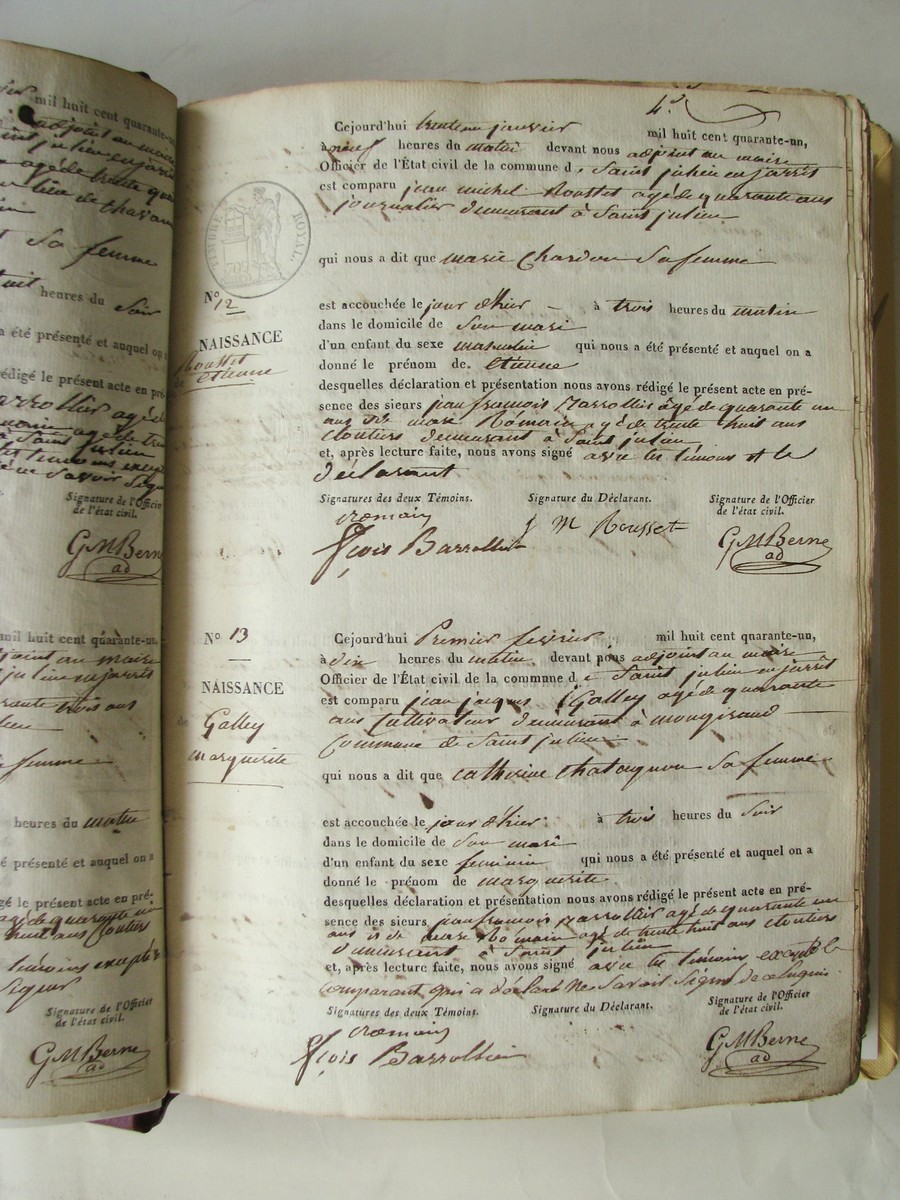 mil huit cent quarante-un,
adjoint au maire
julien en jarrêt
agé de trente
de
sa femme
heures du soir
a été présenté et auquel on a
rédigé le présent acte en pré-
agé de
Saint julien
témoins
savoir
Signature de l'Officier
de l'état civil.
GMBerne
ad
mil huit cent quarante-un,
adjoint au maire
julien en jarrêt
quarante trois ans
femme
heures du matin
été présenté et auquel on a
rédigé le présent acte en pré-
agé de quarante un
huit ans Cloutiers
témoins excepté
Signer
Signature de l'Officier
de l'état civil.
GMBerne
ad
4e
TIMBRE ROYAL.
No 12
NAISSANCE
de Rousset
etienne
Cejourd'hui trente un janvier mil huit cent quarante-un,
à neuf heures du matin devant nous adjoint au maire
Officier de l'État civil de la commune de Saint julien en jarrêt
est comparu jean michel Rousset agé de quarante ans
journalier demeurant à Saint julien
qui nous a dit que marie Chardon Sa femme
est accouchée le jour d'hier à trois heures du matin
dans le domicile de Son mari
d'un enfant du sexe masculin qui nous a été présenté et auquel on a
donné le prénom de etienne
desquelles déclaration et présentation nous avons rédigé le présent acte en pré-
sence des sieurs jean francois Barrollier âgé de quarante un
ans et de marc Romain agé de trente huit ans
Cloutiers demeurant à Saint julien
et, après lecture faite, nous avons signé avec les témoins et le
déclarant
Signatures des deux Témoins. Signature du Déclarant. Signature de l'Officier
de l'état civil.
romain
fçois Barrollier
J M Rousset
GMBerne
ad
No 13
NAISSANCE
de Galley
marguerite
Cejourd'hui Premier fevrier mil huit cent quarante-un,
à dix heures du matin devant nous adjoint au maire
Officier de l'État civil de la commune de Saint julien en jarrêt
est comparu jean jacques Galley agé de quarante
ans Cultivateur demeurant à mongiraud
Commune de Saint julien
qui nous a dit que Catherine Chatagnon Sa femme
est accouchée le jour d'hier à trois heures du Soir
dans le domicile de Son mari
d'un enfant du sexe feminin qui nous a été présenté et auquel on a
donné le prénom de marguerite
desquelles déclaration et présentation nous avons rédigé le présent acte en pré-
sence des sieurs jean francois Barrollier agé de quarante un
ans et de marc Romain agé de trente huit ans Cloutiers
demeurant à Saint julien
et, après lecture faite, nous avons signé avec les témoins excepté le
Comparant qui a déclaré Ne Savoir Signer de ce Enquis
Signatures des deux Témoins. Signature du Déclarant. Signature de l'Officier
de l'état civil.
romain
fçois Barrollier
GMBerne
ad